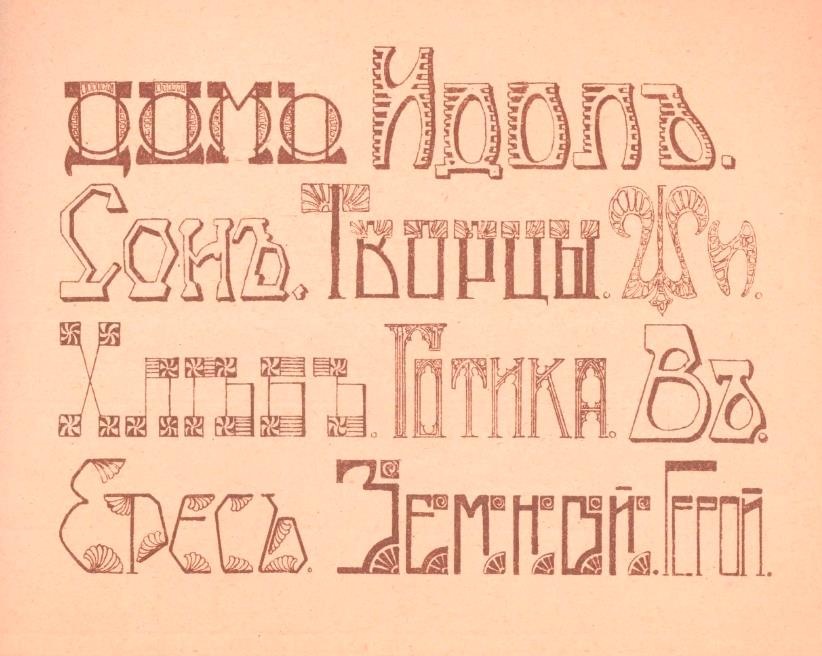 ДОМЪ Идолъ.
Сонъ. Творцы. Жи.
Хлѣбъ. Готика. Въ.
Ересь. Земной. Герой.